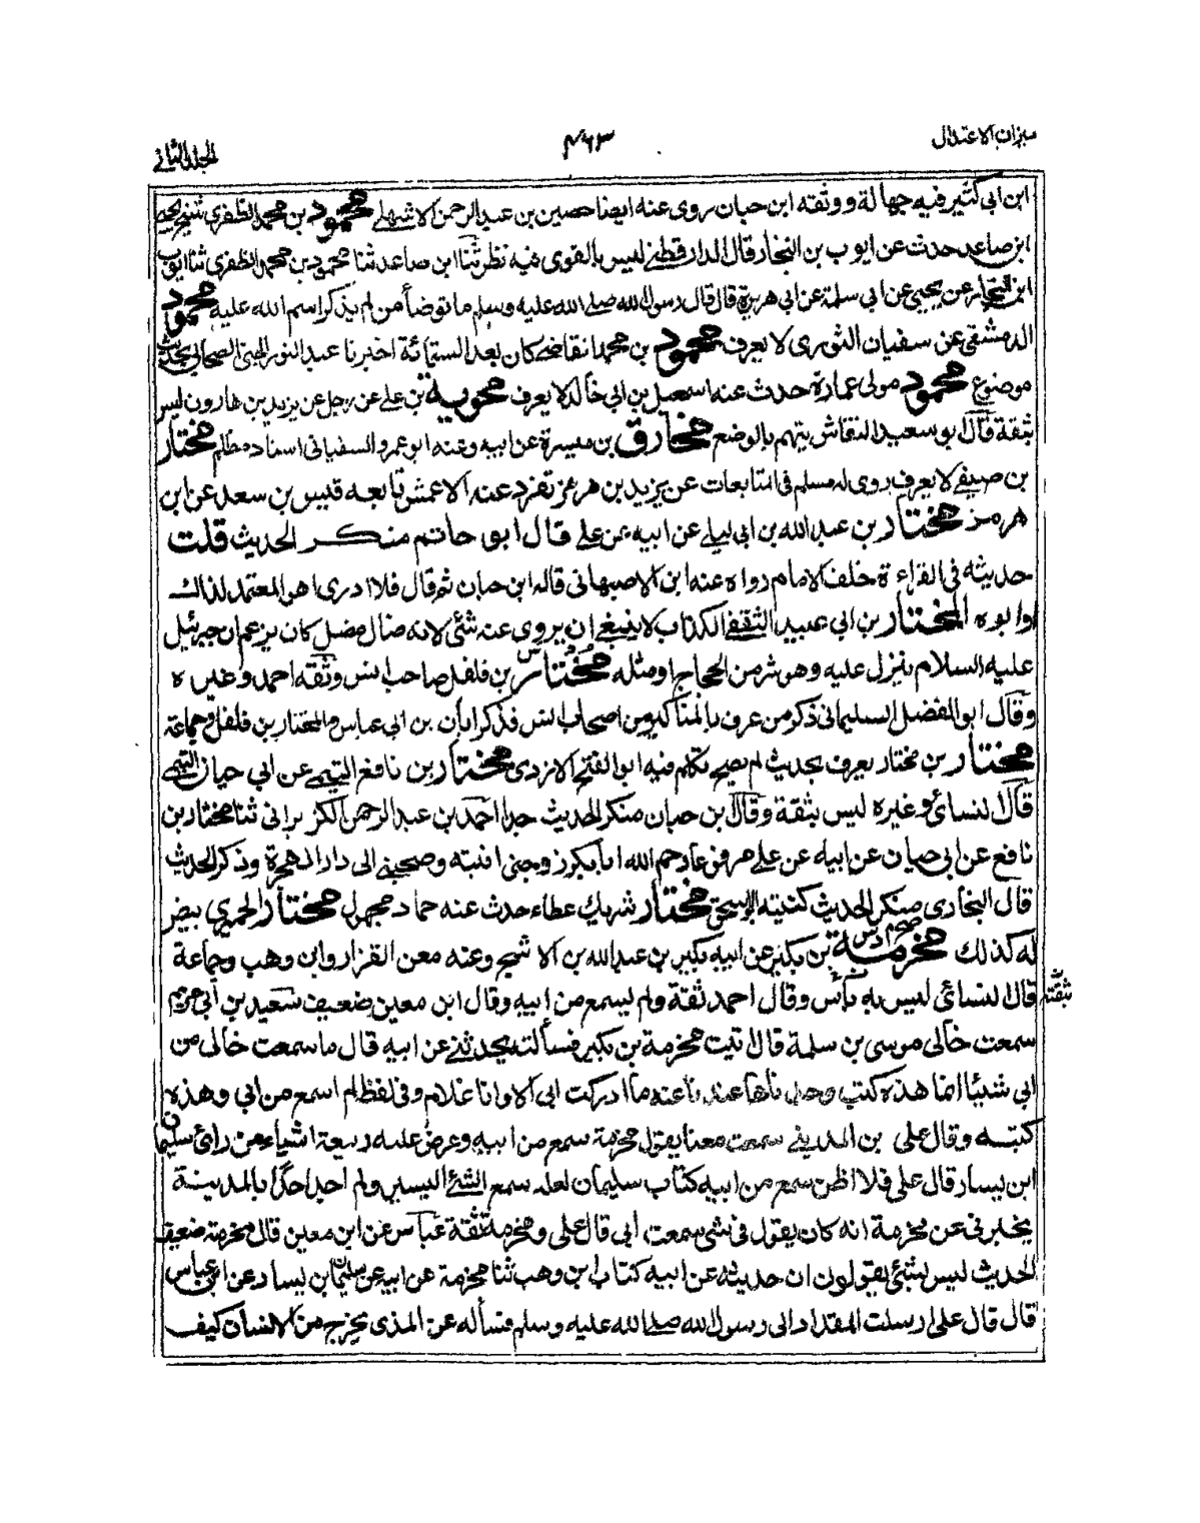 ميزان الاعتدال
٤٦٣
الجلد الثاني
ابن ابى كثير فيه جهالة ووثقه ابن حبان روى عنه ايضا حصين بن عبد الرحمن الاشهلى محمود بن محمد الظفرى شيخ يحيى
ابن صاعد حدث عن ايوب بن النجار قال الدارقطنى ليس بالقوى فيه نظر ثنا ابن صاعد ثنا محمود بن محمد الظفرى ثنا ايوب
ابن النجار عن يحيى عن ابى سلمة عن ابى هريرة قال قال رسول الله صلى الله عليه وسلم ما توضأ من لم يذكر اسم الله عليه محمود
الدمشقى عن سفيان الثورى لا يعرف محمود بن محمد القاضى كان بعد الستمائة اخبرنا عبد النور الجنى الصحابى بحديث
موضوع محمود مولى عمارة حدث عنه اسمعيل بن ابى خالد لا يعرف محويه بن على عن رجل عن يزيد بن هارون ليس
بثقة قال ابو سعيد النقاش يتهم بالوضع مخارق بن ميسرة عن ابيه وعنه ابو عمرو السفيانى اسناد مظلم مختار
بن صيفى لا يعرف روى له مسلم فى المتابعات عن يزيد بن هرمز تفرد عنه الاعمش تابعه قيس بن سعد عن ابن
هرمز مختار بن عبد الله بن ابى ليلى عن ابيه عن على قال ابو حاتم منكر الحديث قلت
حديثه فى القراءة خلف الامام رواه عنه ابن الاصبهانى قاله ابن حبان ثم قال فلا ادرى اهو المعتمد لذلك
او ابوه المختار بن ابى عبيد الثقفى الكذاب لا ينبغى ان يروى عنه شئ لانه ضال مضل كان يزعم ان جبرئيل
عليه السلام ينزل عليه وهو شر من الحجاج او مثله مختار بن فلفل صاحب انس وثقه احمد وغيره
وقال ابو الفضل السليمانى ذكر من عرف بالمناكير من اصحاب انس فذكر ابان بن ابى عياش والمختار بن فلفل وجماعة
مختار بن مختار يعرف بحديث لم يصح تكلم فيه ابو الفتح الازدى مختار بن نافع التيمى عن ابى حيان التيمى
قال النسائى وغيره ليس بثقة وقال ابن حبان منكر الحديث جدا احمد بن عبد الرحمن الكزبرانى ثنا مختار بن
نافع عن ابى حيان عن ابيه عن على مرفوعا رحم الله ابا بكر زوجنى ابنته وصحبنى الى دار الهجرة وذكر الحديث
قال البخارى منكر الحديث كنيته ابو اسحق مختار شريك عطاء حدث عنه حماد مجهول مختار الحميرى بيض
له كذلك مخرمة بن بكير عن ابيه بكير بن عبد الله بن الاشج وعنه معن القزاز وابن وهب وجماعة
قال النسائى ليس به بأس وقال احمد ثقة ولم يسمع من ابيه وقال ابن معين ضعيف سعيد بن ابى مريم
سمعت خالى موسى بن سلمة قال اتيت مخرمة بن بكير فسألته يحدثنى عن ابيه قال ما سمعت خالى من
ابى شيئا انما هذه كتب وجدناها عندنا عنه ما ادركت ابى الا وانا غلام وفى لفظ لم اسمع من ابى وهذه
كتبه وقال على بن المدينى سمعت معنا يقول مخرمة سمع من ابيه وعرض عليه ربيعة اشياء من رائ سليمان
ابن يسار قال على فلا اظن سمع من ابيه كتاب سليمان لعله سمع الشئ اليسير ولم اجد احدا بالمدينة
يخبرنى عن مخرمة انه كان يقول فى شئ سمعت ابى قال على ومخرمة ثقة عباس عن ابن معين قال مخرمة ضعيف
الحديث ليس بشئ يقولون ان حديثه عن ابيه كتاب ابن وهب ثنا مخرمة عن ابيه عن سليمان بن يسار عن ابن عباس
قال قال على ارسلت المقداد الى رسول الله صلى الله عليه وسلم فسأله عن المذى يخرج من الانسان كيف
ثقة